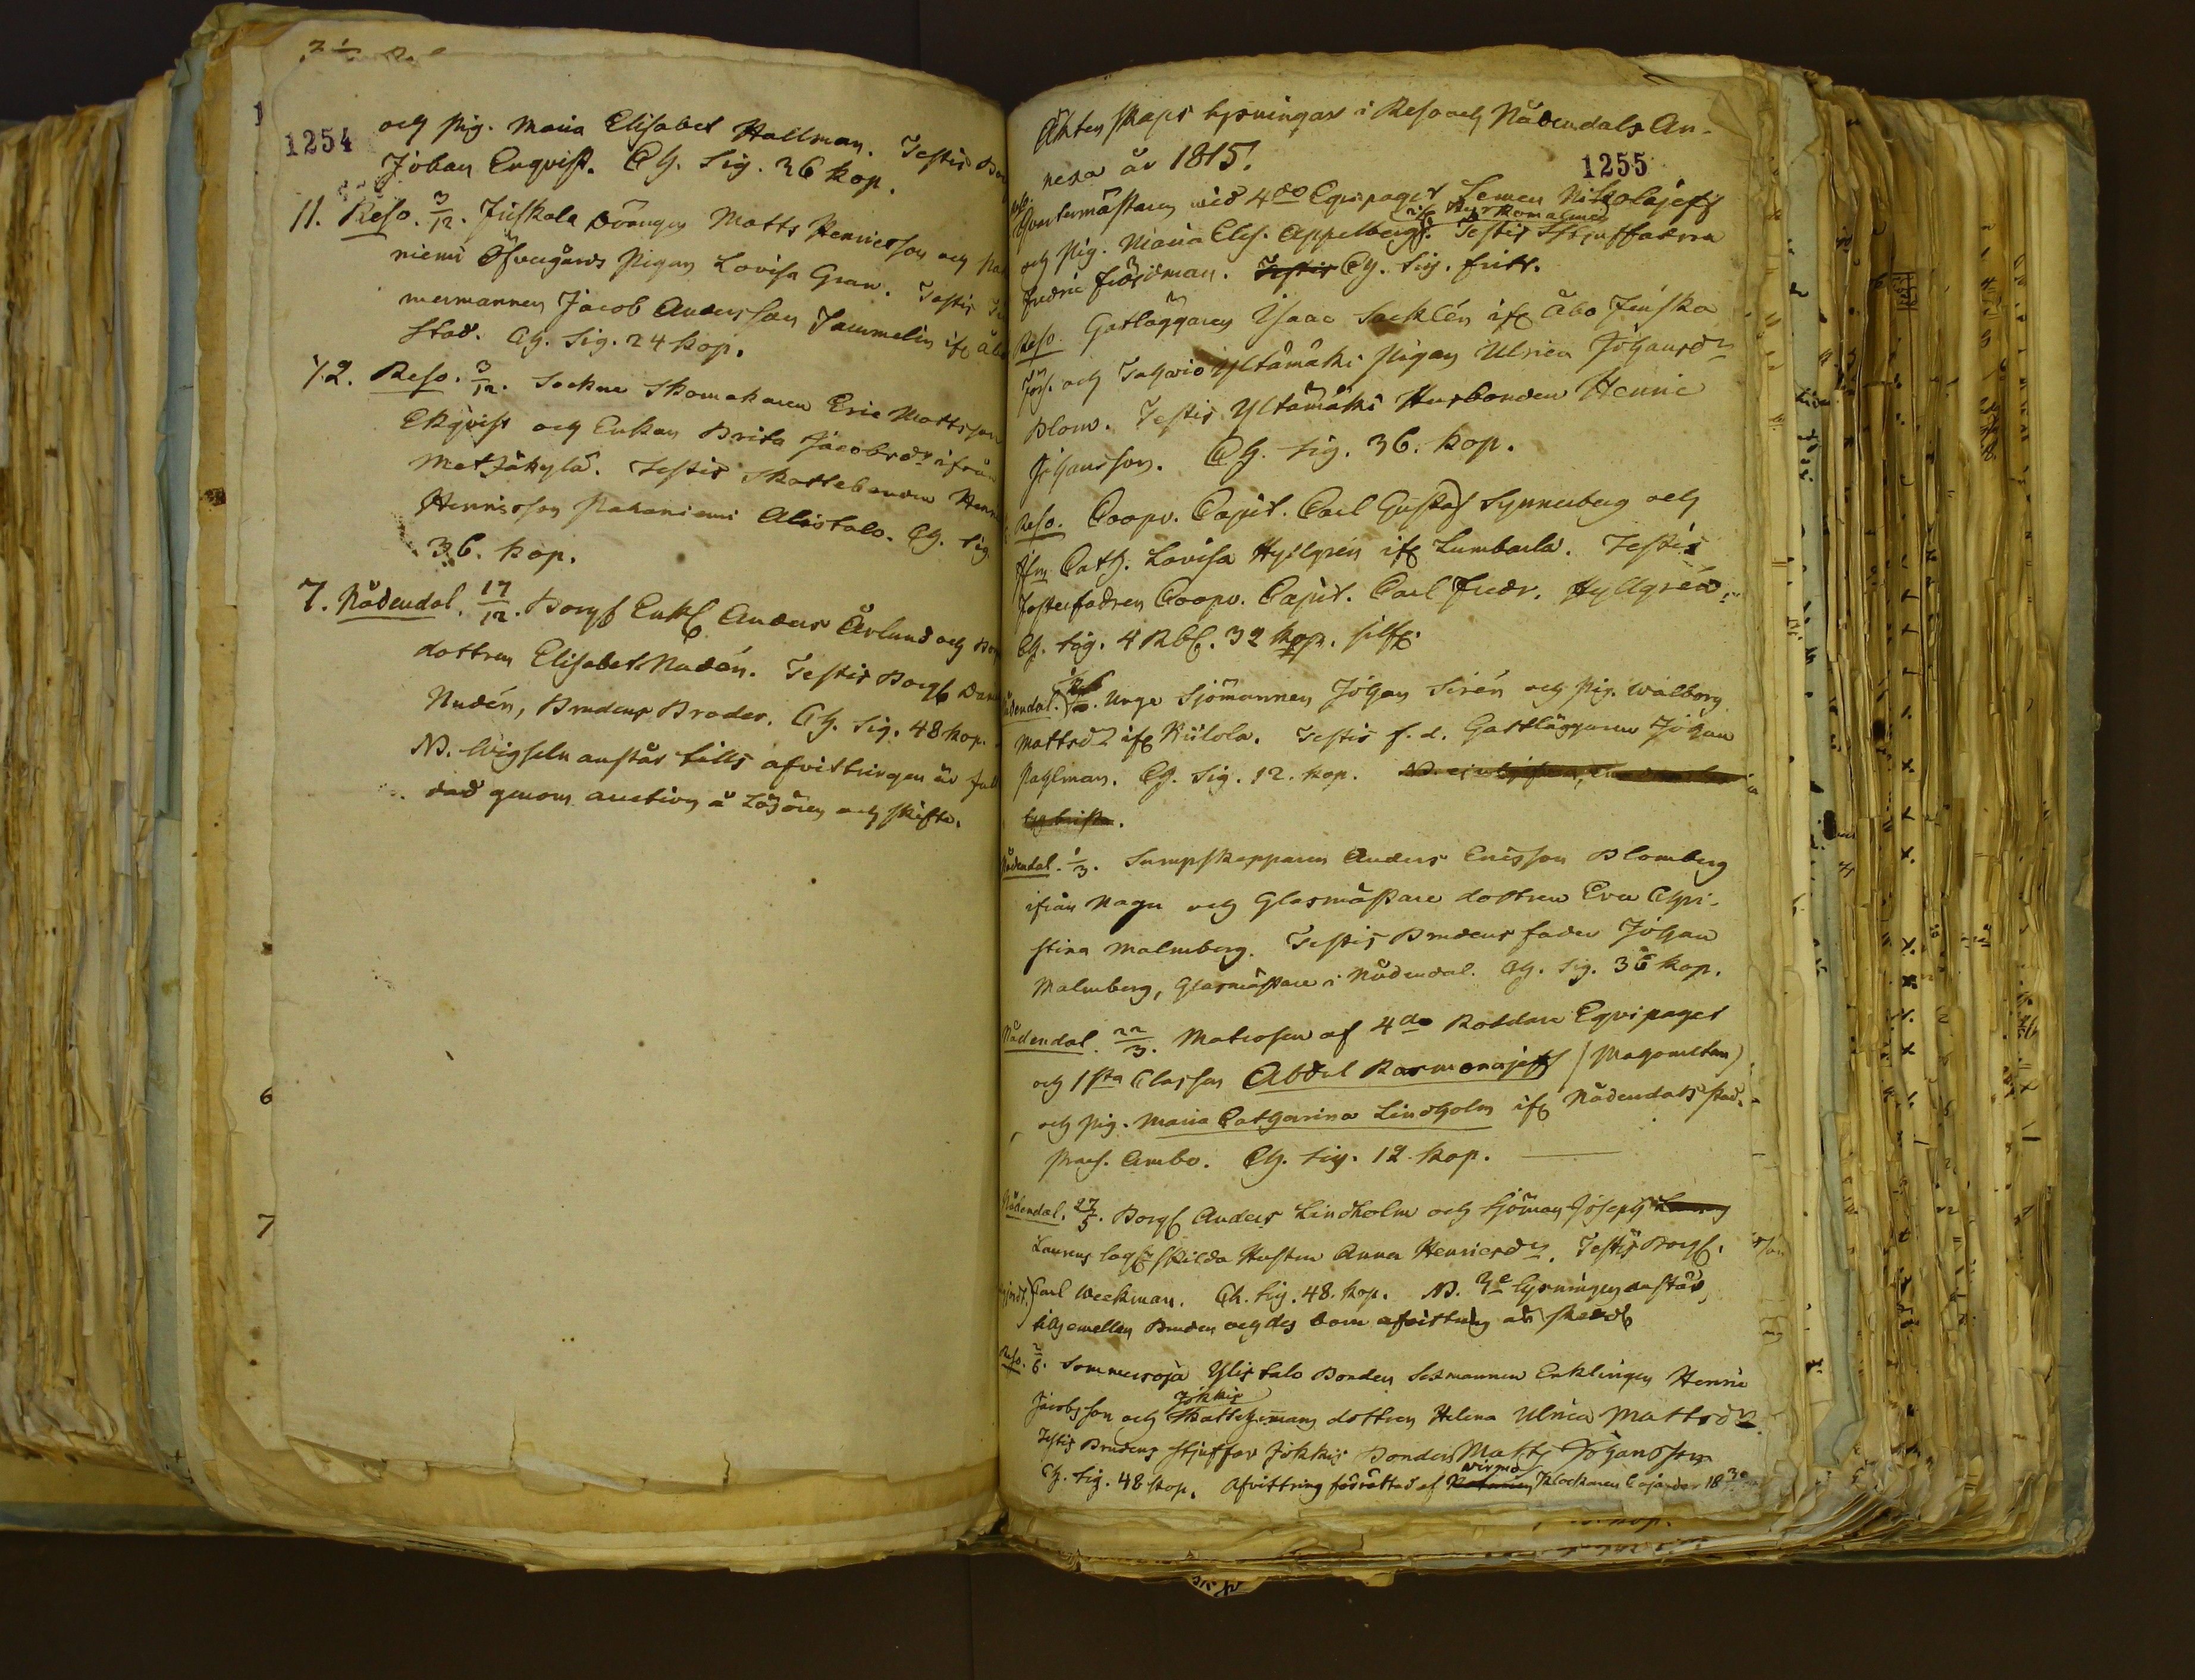 1254
och Pig. Maria Elisabet Hallman. Testis
Johan Enqvist. Ch. Sig. 36 kop.
11. Reso. 3/12. Juskala Drängen Matts Henricsson och
niemi Öfvergårds Pigan Lovisa Gran. Testis
mermannen Jacob Andersson Tammelin ifr.
Stad. Ch. Sig. 24 kop.
12. Reso. 3/12. Sockne Skomakaren Eric Mattsson
Ekqvist och Enkan Brita Jacobsdr ifrån
Metsäkylä. Testis Skattebonden
Henricsson Pakaniemi Alistalo. Ch. Sig.
36. kop.
7. Nådendal. 17/12. Borg. Enkl. Anders Ärlund och
dottren Elisabet Nudén. Testis Borg.
Nudén, Brudens Broder. Ch. Sig. 48 kop.
NB. Wigseln anstår tills afvittringen är
dad genom auction å Lösören och skifte.
6
7
Äktenskaps lysningar i Reso och Nådendals An-
nexa år 1815.
1255
Reso.
Qvartermästaren wid 4de Equipaget Semen Nikolajeff
och Pig. Maria Elis. Appelberg. Testis Styffadren
Fredric Ch. Sig. fritt.
Reso. Gatläggaren Isaac Sacklén ifr. Åbo Finska
Förs. och Tahvio Yltämäki Pigan Ulrica Johansdr
Blom. Testis Yltämäki Husbonden Henric
Johansson. Ch. Sig. 36. kop.
Reso. Coopv. Capit. Carl Gustaf Synnerberg och
Jfru Cath. Lovisa Hyllgrén ifr. Lumbarla. Testis
Fosterfadren Coopv. Capit. Carl Fredr. Hyllgrén.
Ch. Sig. 4 Rbl. 32 kop. silfr.
Nådendal. Unge Sjömannen Johan Sirén och Pig. Walborg
Mattsdr ifr. Viilola. Testis f. d. Gatläggaren Johan
Pahlman. Ch. Sig. 12. kop.
Nådendal. 1/3. Sumpskepparen Anders Ericsson Blomberg
ifrån Nagu och Glasmästare dottren Eva Chri-
stina Malmberg. Testis Brudens fader Johan
Malmberg, Glasmästare i Nådendal. Ch. Sig. 36 kop.
Nådendal. 22/3. Matrosen af 4de Roddare Eqvipaget
och 1sta Classen Abdul Rasmonajeff (Magometan)
och Pig. Maria Catharina Lindholm ifr. Nådendals Stad.
Præs. Ambo. Ch. Sig. 12 kop.
Nådendal. 27/5. Borg. Anders Lindholm och Sjöman Joseph
Laurens lagl. skilda Hustru Anna Henricsdr. Testis Borg.
Carl Weckman. Ch. Sig. 48. kop. NB. 3e Lysningen anstår,
tils emellan Bruden och des barn afvittring är skedd
Reso. 2/6. Sommersoja Ylistalo Bonden Sexmannen Enklingen Henric
Jacobsson och Jökkis dottren Helena Ulrica Mattsdr.
Testis Brudens styffar Jökkis Bonden Matts Johansson
Ch. Sig. 48 kop. Afvittring förrättad af wirmo Klockaren Cajander 18